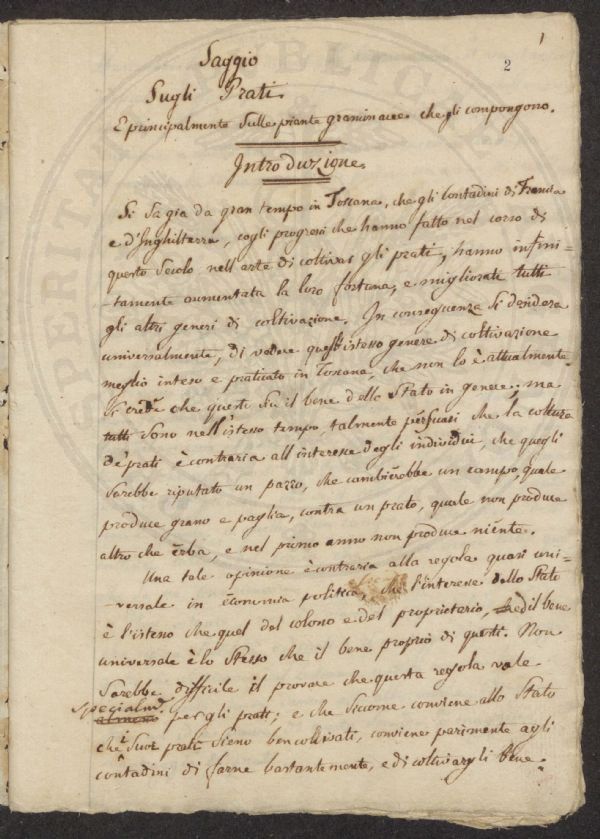 1
2
Saggio
Sugli Prati
E principalmente sulle piante graminacee che gli compongono.
Introduzione
Si sa gia da gran tempo in Toscana, che gli Contadini di Francia
e d'Inghilterra, cogli progressi che hanno fatto nel corso di
questo secolo nell'arte di coltivar gli prati, hanno infini=
=tamente aumentata la loro fortuna, e migliorati tutti
gli altri generi di coltivazione. In consequenza si desidera
universalmente, di vedere quest'istesso genere di coltivazione
meglio inteso e praticato in Toscana, che non lo è attualmente.
Si crede che questi sia il bene dello Stato in genere; ma
tutti sono nell'istesso tempo talmente persuasi che la coltura
de prati è contraria all'interesse degli individui, che quegli
sarebbe riputato un pazzo, che cambierebbe un campo, quale
produce grano e paglia, contra un prato, quale non produce
altro che erba, e nel primo anno non produce niente.
Una tale opinione è contraria alla regola quasi uni=
=versale in economia politica, che l'interesse dello Stato
è l'istesso che quel del colono e del proprietario, ed il bene
universale è lo stesso che il bene proprio di questi. Non
sarebbe difficile il provare che questa regola vale
specialme.
almeno per gli prati; e che siccome conviene allo Stato
che i suoi prati sieno ben coltivati, conviene parimente agli
contadini di farne bastantemente, e di coltivargli bene.